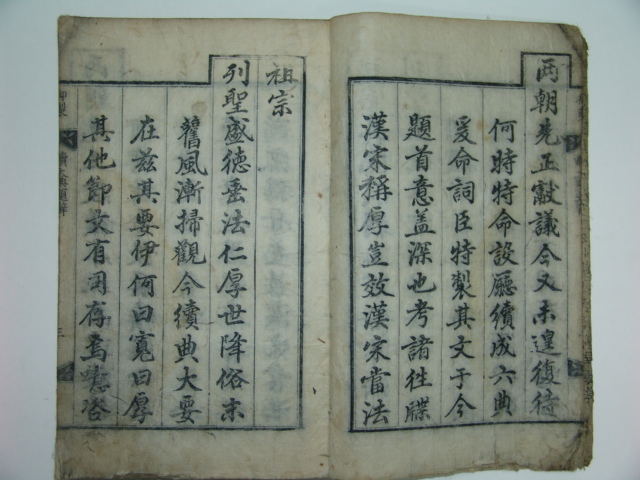 兩朝先正議今又未遑復待
何時特命設廳續成六典
爰命詞臣特製其文于今
題首意盖深也考諸往牒
漢宋稱厚豈效漢宋當法
祖宗
列聖盛德垂法仁厚世降俗末
舊風漸掃觀今續典大要
在玆其要伊何曰寬曰厚
其他節文有同存焉嗟咨